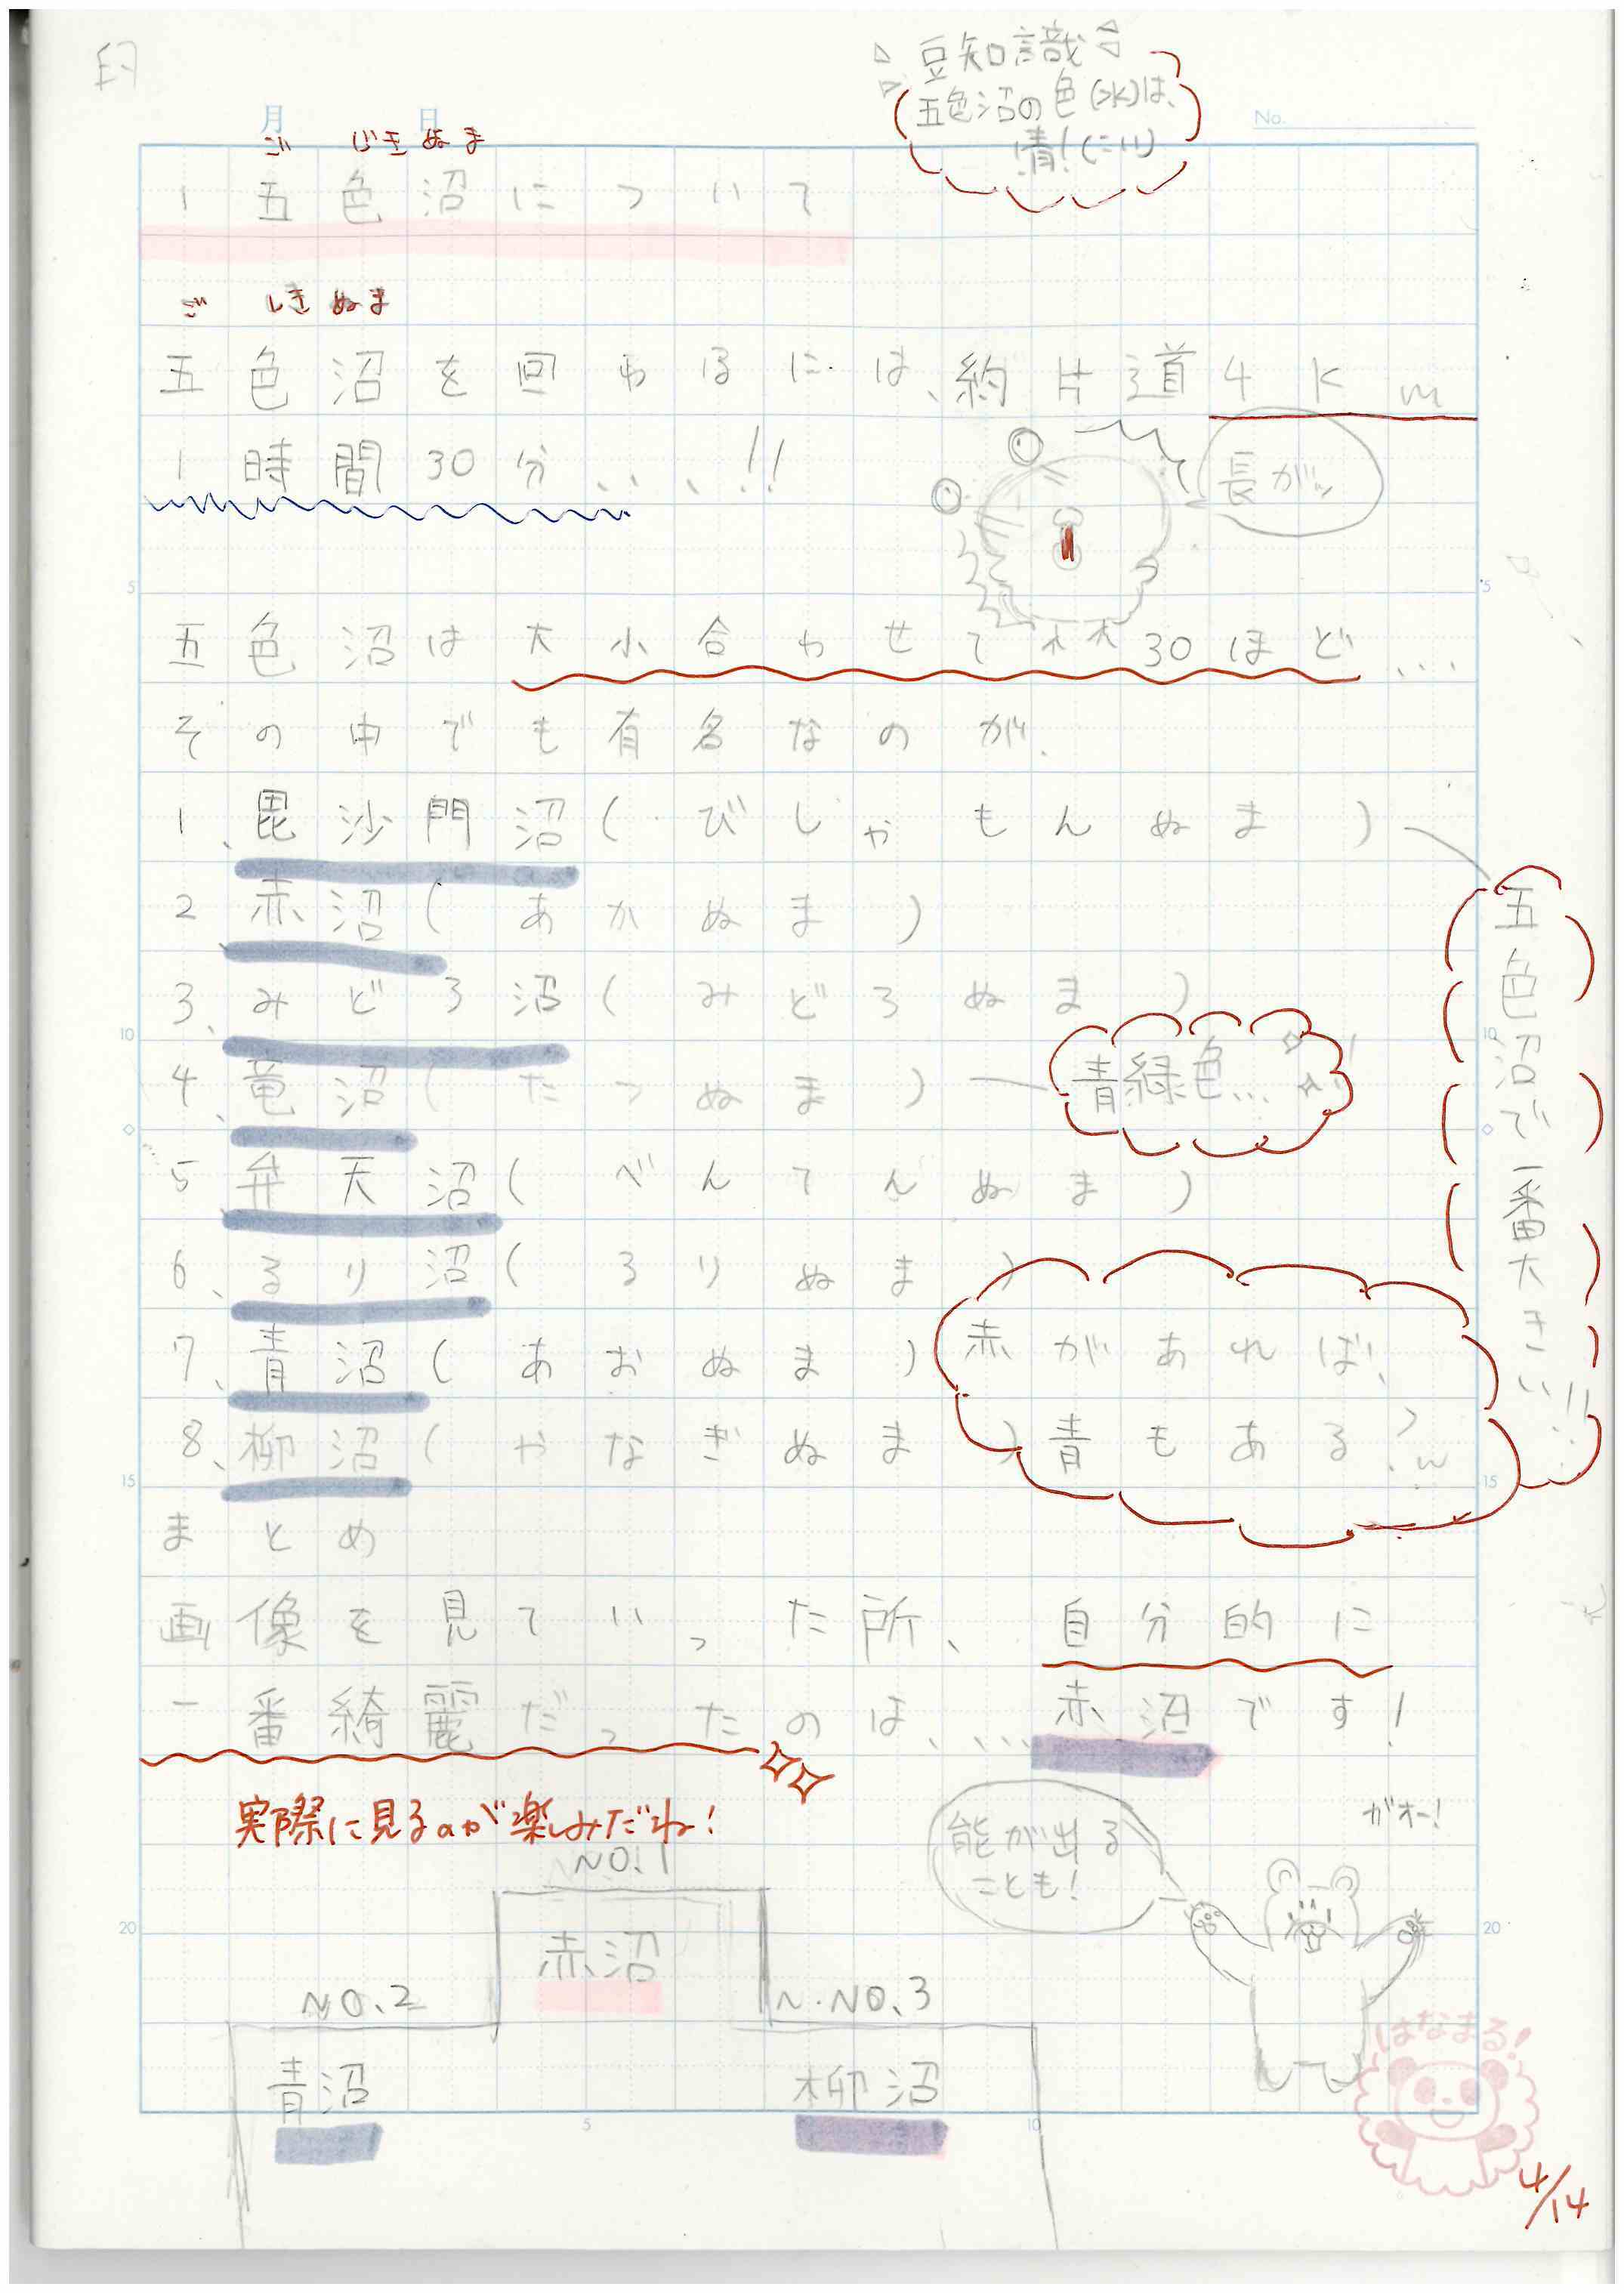 印
豆知識
五色沼の色(水)は、
青!(こい)
月 日
No.
ごしきぬま
1 五色沼について
ごしきぬま
五色沼を回わるには、約片道4km
1時間30分、、、!!
長がッ
五色沼は大小合わせて30ほど...
その中でも有名なのが、
1、毘沙門沼(びしゃもんぬま)
五色沼で一番大きい!!
2、赤沼(あかぬま)
3、みどろ沼(みどろぬま)
4、竜沼(たつぬま)
青緑色...
5、弁天沼(べんてんぬま)
6、るり沼(るりぬま)
7、青沼(あおぬま)
8、柳沼(やなぎぬま)
赤があれば、
青もある?w
まとめ
画像を見ていった所、自分的に
一番綺麗だったのは、...赤沼です!
実際に見るのが楽しみだね!
能が出る
ことも!
がオー!
NO.1
赤沼
NO.2
青沼
NO.3
柳沼
はなまる!
4/14
5
10
15
20
5
10
15
20
5
10